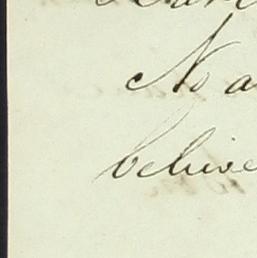 No a
belive